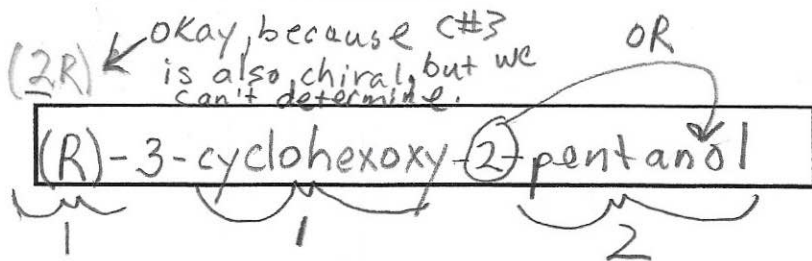 okay, because C#3
is also chiral, but we
can't determine.
OR
(2R)
(R)-3-cyclohexoxy-2-pentanol
1 1 2